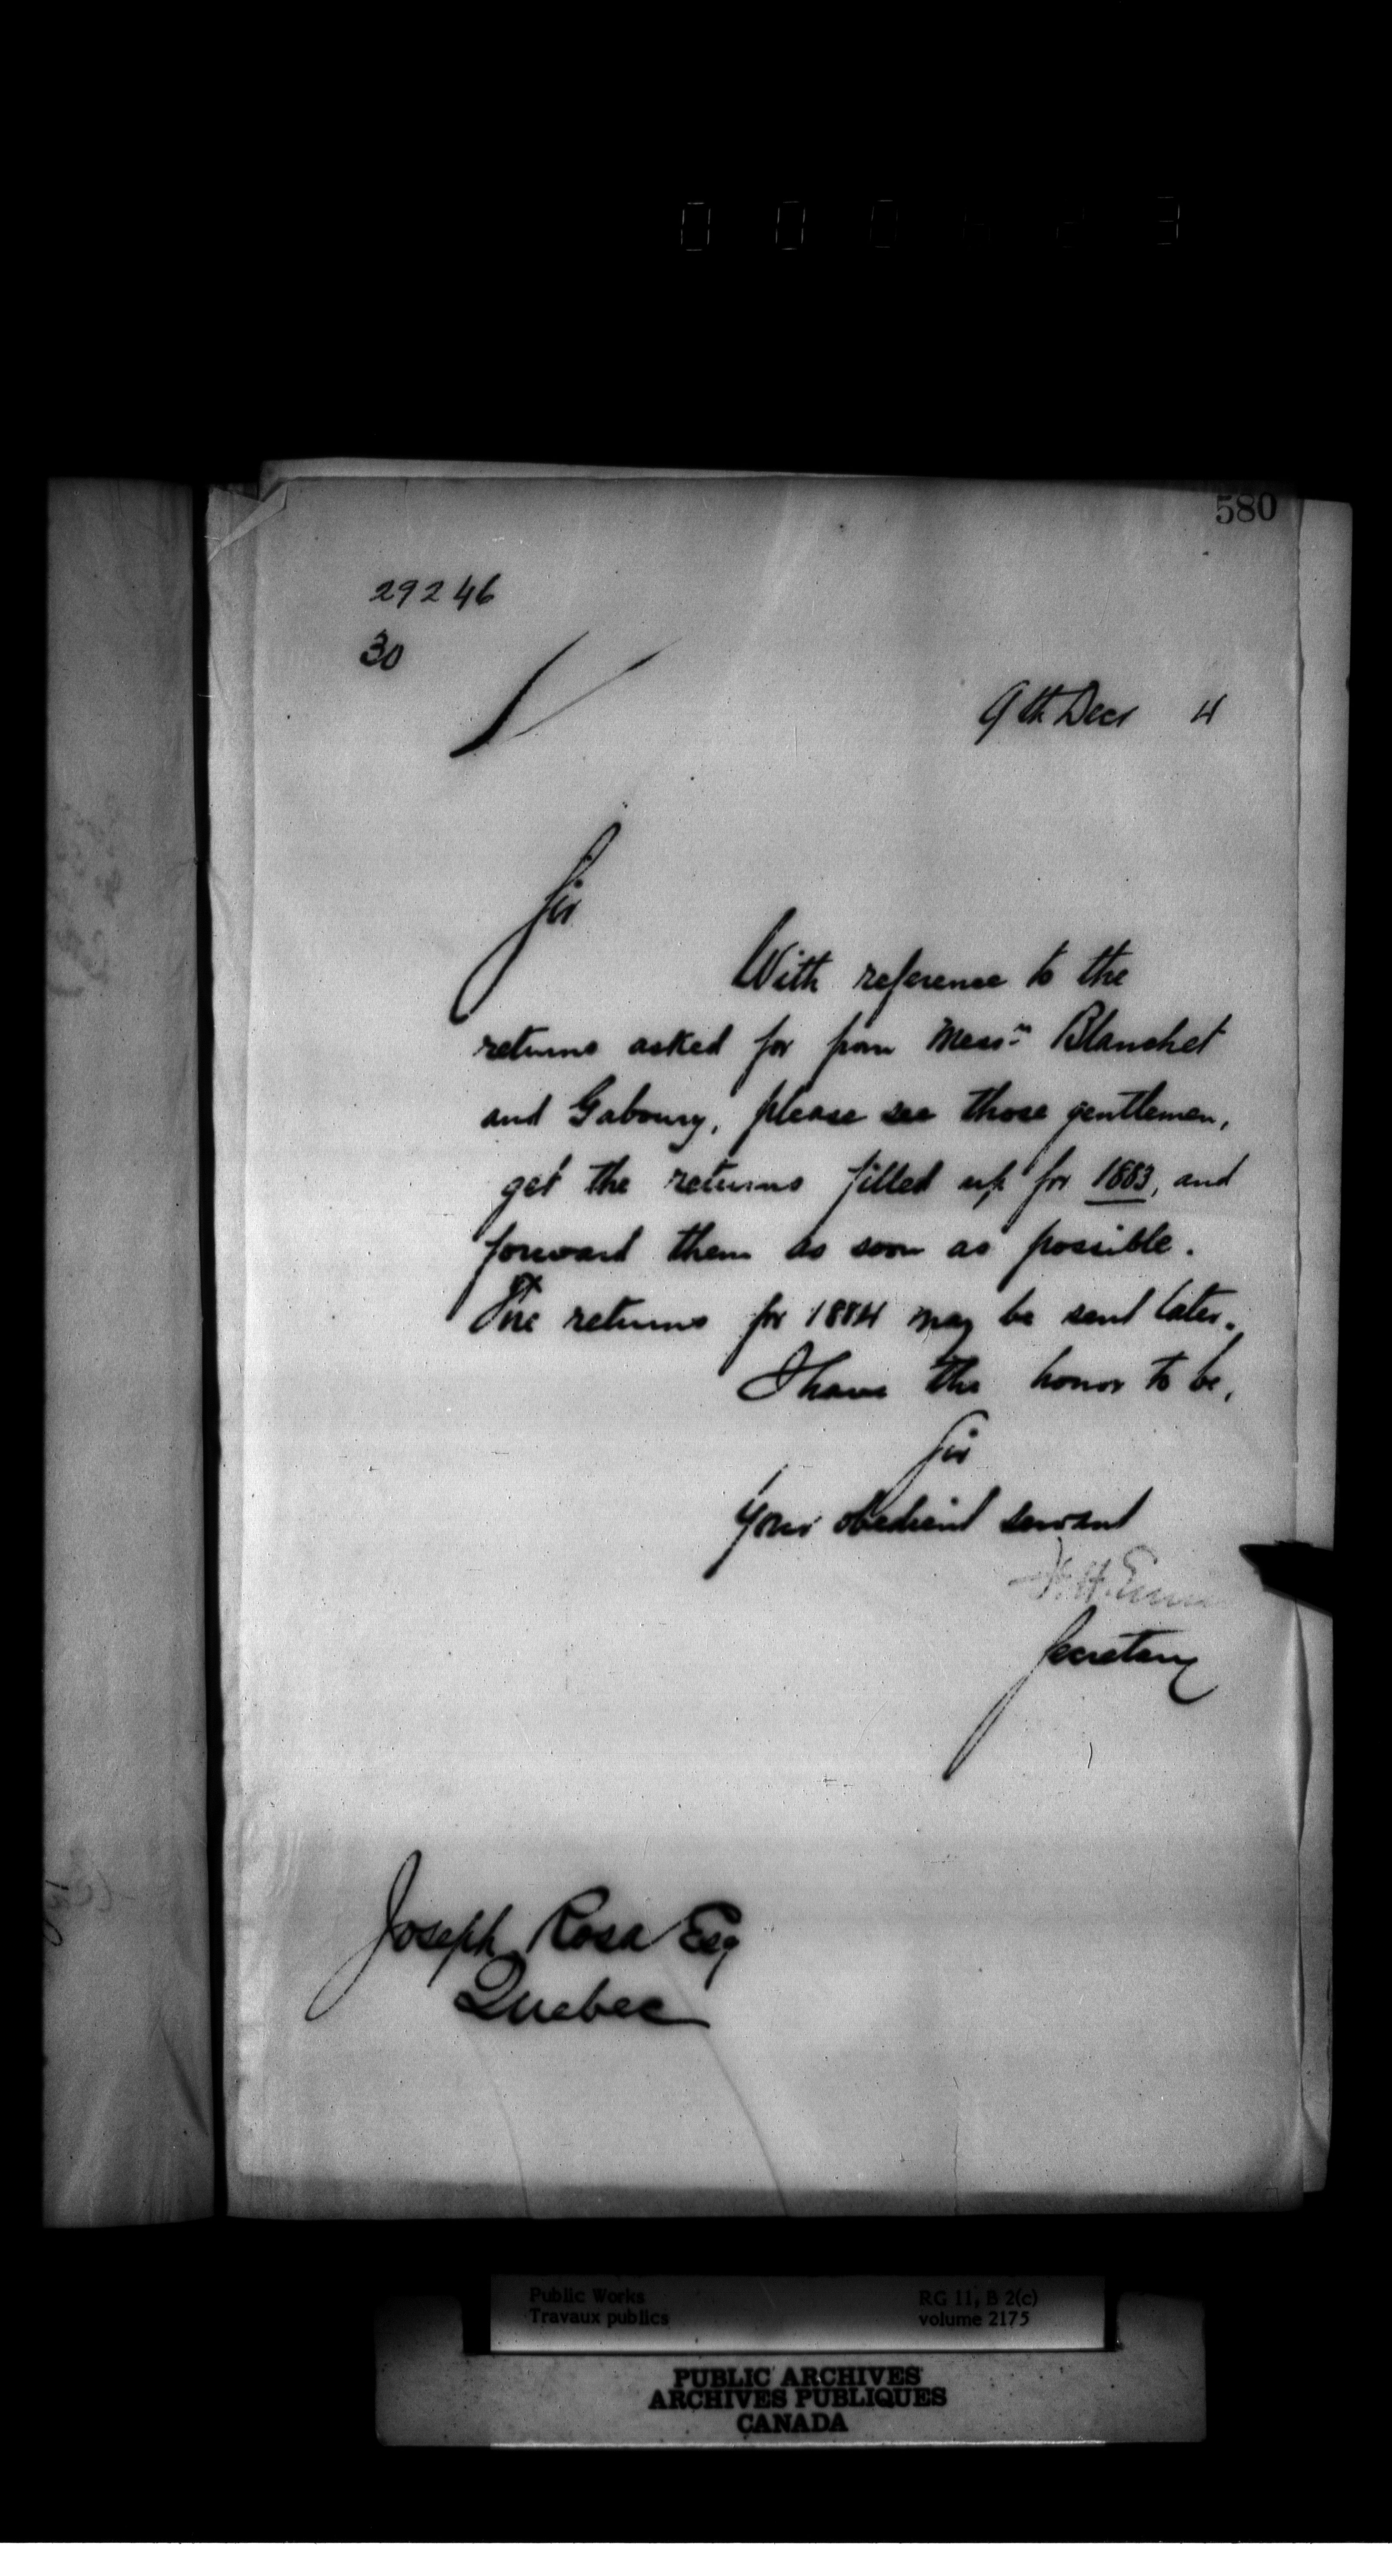 580
29246
30
9th Decr 4
Sir
With reference to the
returns asked for from Messrs Blanchet
and Gaboury, please see those gentlemen,
get the returns filled up for 1883, and
forward them as soon as possible.
The returns for 1884 may be sent later.
I have the honor to be,
Sir
Your obedient servant
Secretary
Joseph Rosa Esq
Quebec
Public Works
Travaux publics
RG 11, B 2(c)
volume 2175
PUBLIC ARCHIVES
ARCHIVES PUBLIQUES
CANADA